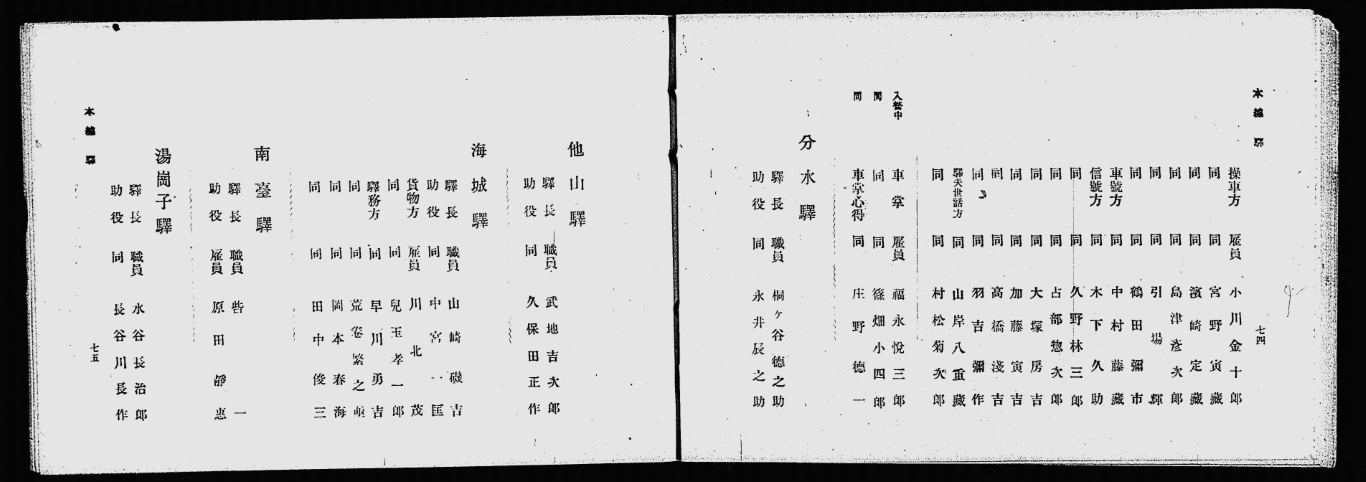 本線 驛
七四
操車方 雇員 小川金十郎
同 同 宮野寅藏
同 同 濱崎定藏
同 同 島津彦次郎
同 同 引場輝
同 同 鶴田彌市
車號方 同 中村藤藏
信號方 同 木下久助
同 同 久野林三郎
同 同 占部惣次郎
同 同 大塚房吉
同 同 加藤寅吉
同 同 高橋淺吉
同 同 羽吉彌作
驛夫世話方 同 山岸八重藏
同 同 村松菊次郎
入營中 車掌 雇員 福永悅三郎
同 同 同 篠畑小四郎
同 車掌心得 同 庄野德一
分水驛
驛長 職員 桐ヶ谷德之助
助役 同 永井辰之助
他山驛
驛長 職員 武地吉次郎
助役 同 久保田正作
海城驛
驛長 職員 山崎磯吉
助役 同 中宮一匡
貨物方 雇員 川北茂
同 同 兒玉孝一郎
驛務方 同 早川勇吉
同 同 荒卷繁之
同 同 岡本春海
同 同 田中俊三
南臺驛
驛長 職員 一
助役 雇員 原田靜惠
湯崗子驛
驛長 職員 水谷長治郎
助役 同 長谷川長作
本線 驛
七五